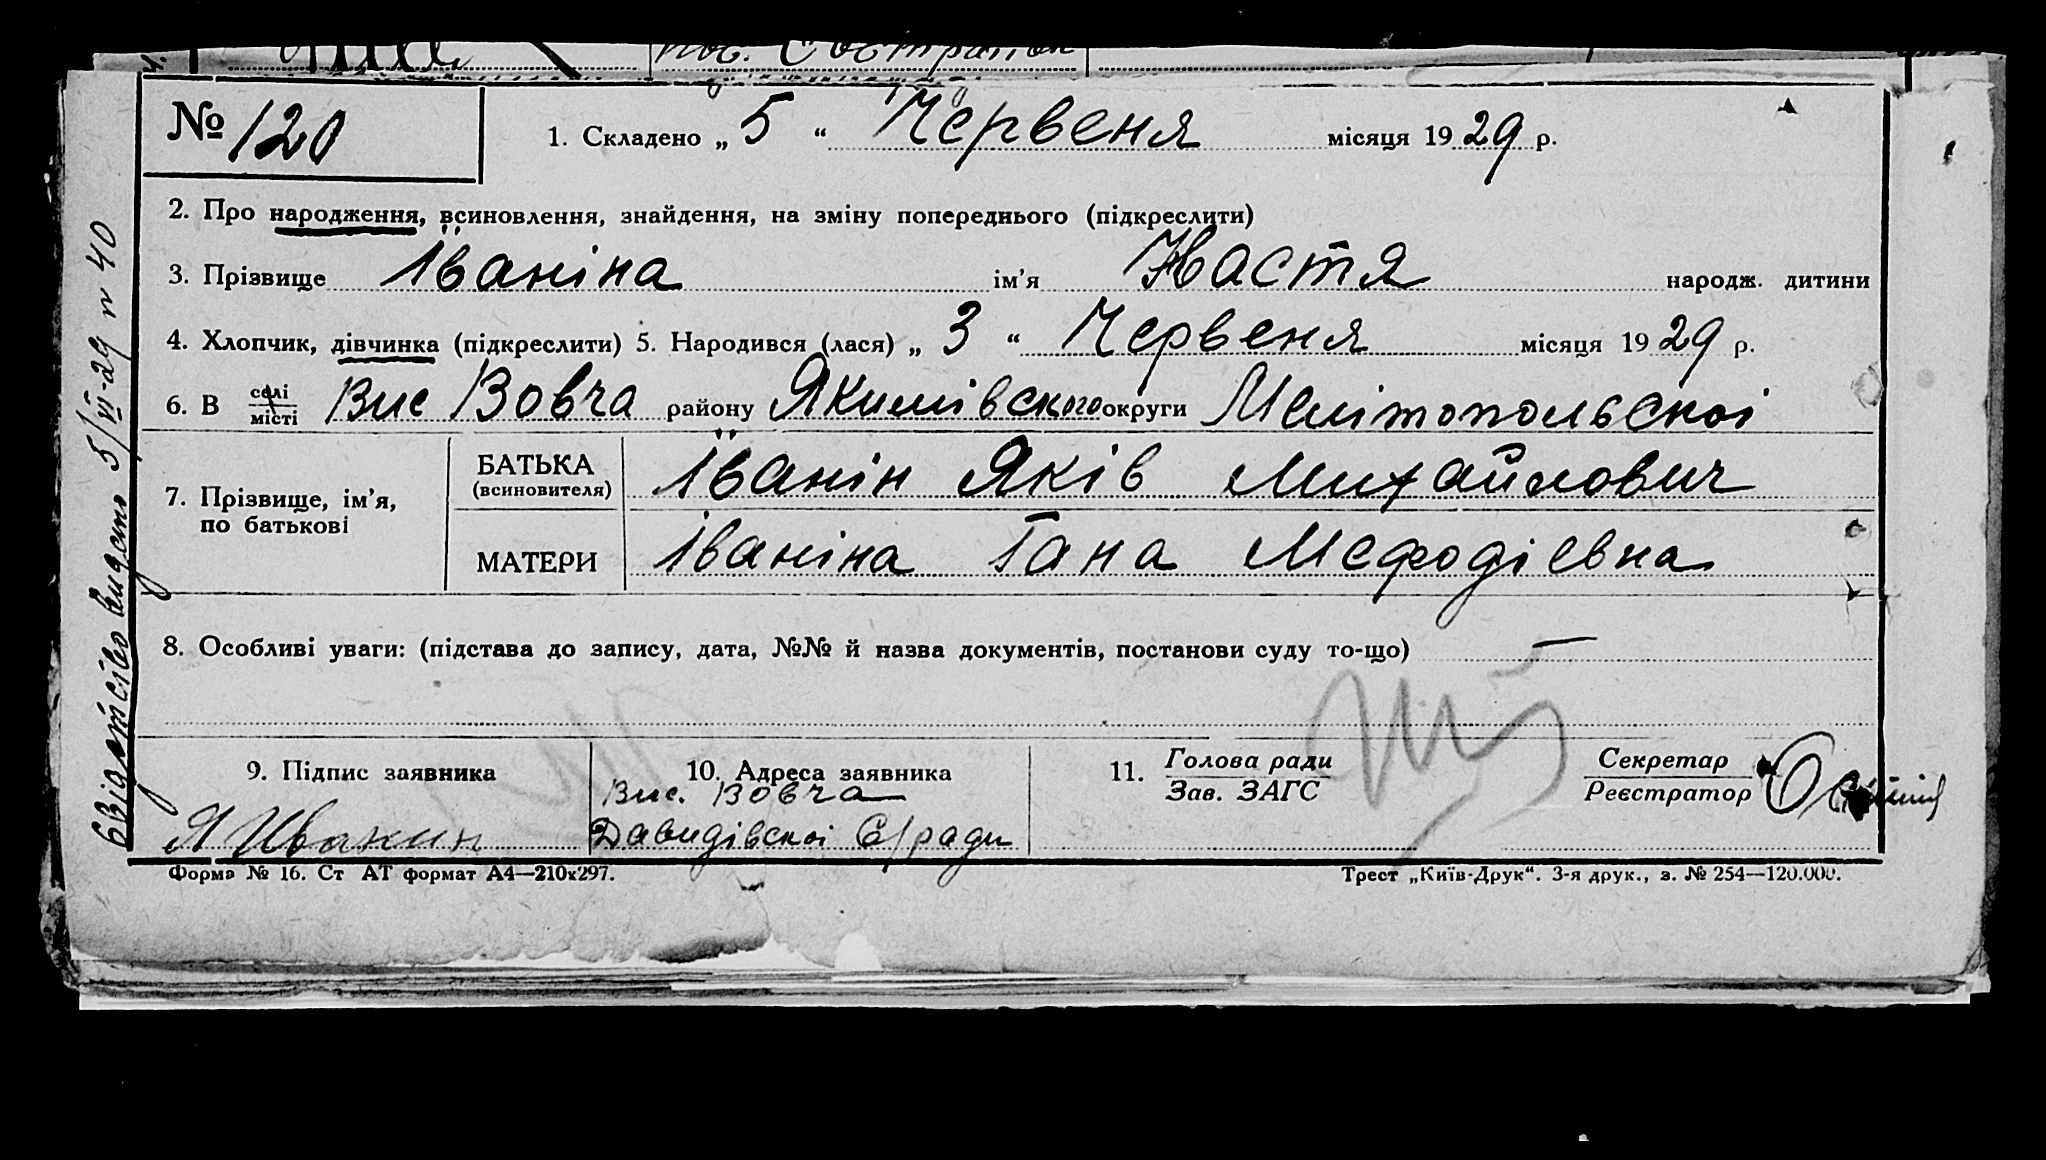 № 120
1. Складено „ 5 “ Червеня місяця 1929 р.
2. Про народження, всиновлення, знайдення, на зміну попереднього (підкреслити)
3. Прізвище Їваніна ім’я Настя народж. дитини
4. Хлопчик, дівчинка (підкреслити) 5. Народився (лася) „ 3 “ Червеня місяця 1929 р.
6. В селі місті Вис Вовча району Якимівского округи Мелітопольскоі
7. Прізвище, ім’я, по батькові
БАТЬКА (всиновителя) Їванін Яків Михайлович
МАТЕРИ Іваніна Гана Мефодіевна
8. Особливі уваги: (підстава до запису, дата, №№ й назва документів, постанови суду то-що) —
9. Підпис заявника
Я Иванин
10. Адреса заявника
Вис. Вовча
Давидівскоі С/ради
11. Голова ради
Зав. ЗАГС
Секретар
Реєстратор
Форма № 16. Ст АТ формат А4—210х297.
Трест „Київ-Друк“. 3-я друк., з. № 254—120.000.
видано 5/VI-29 № 40